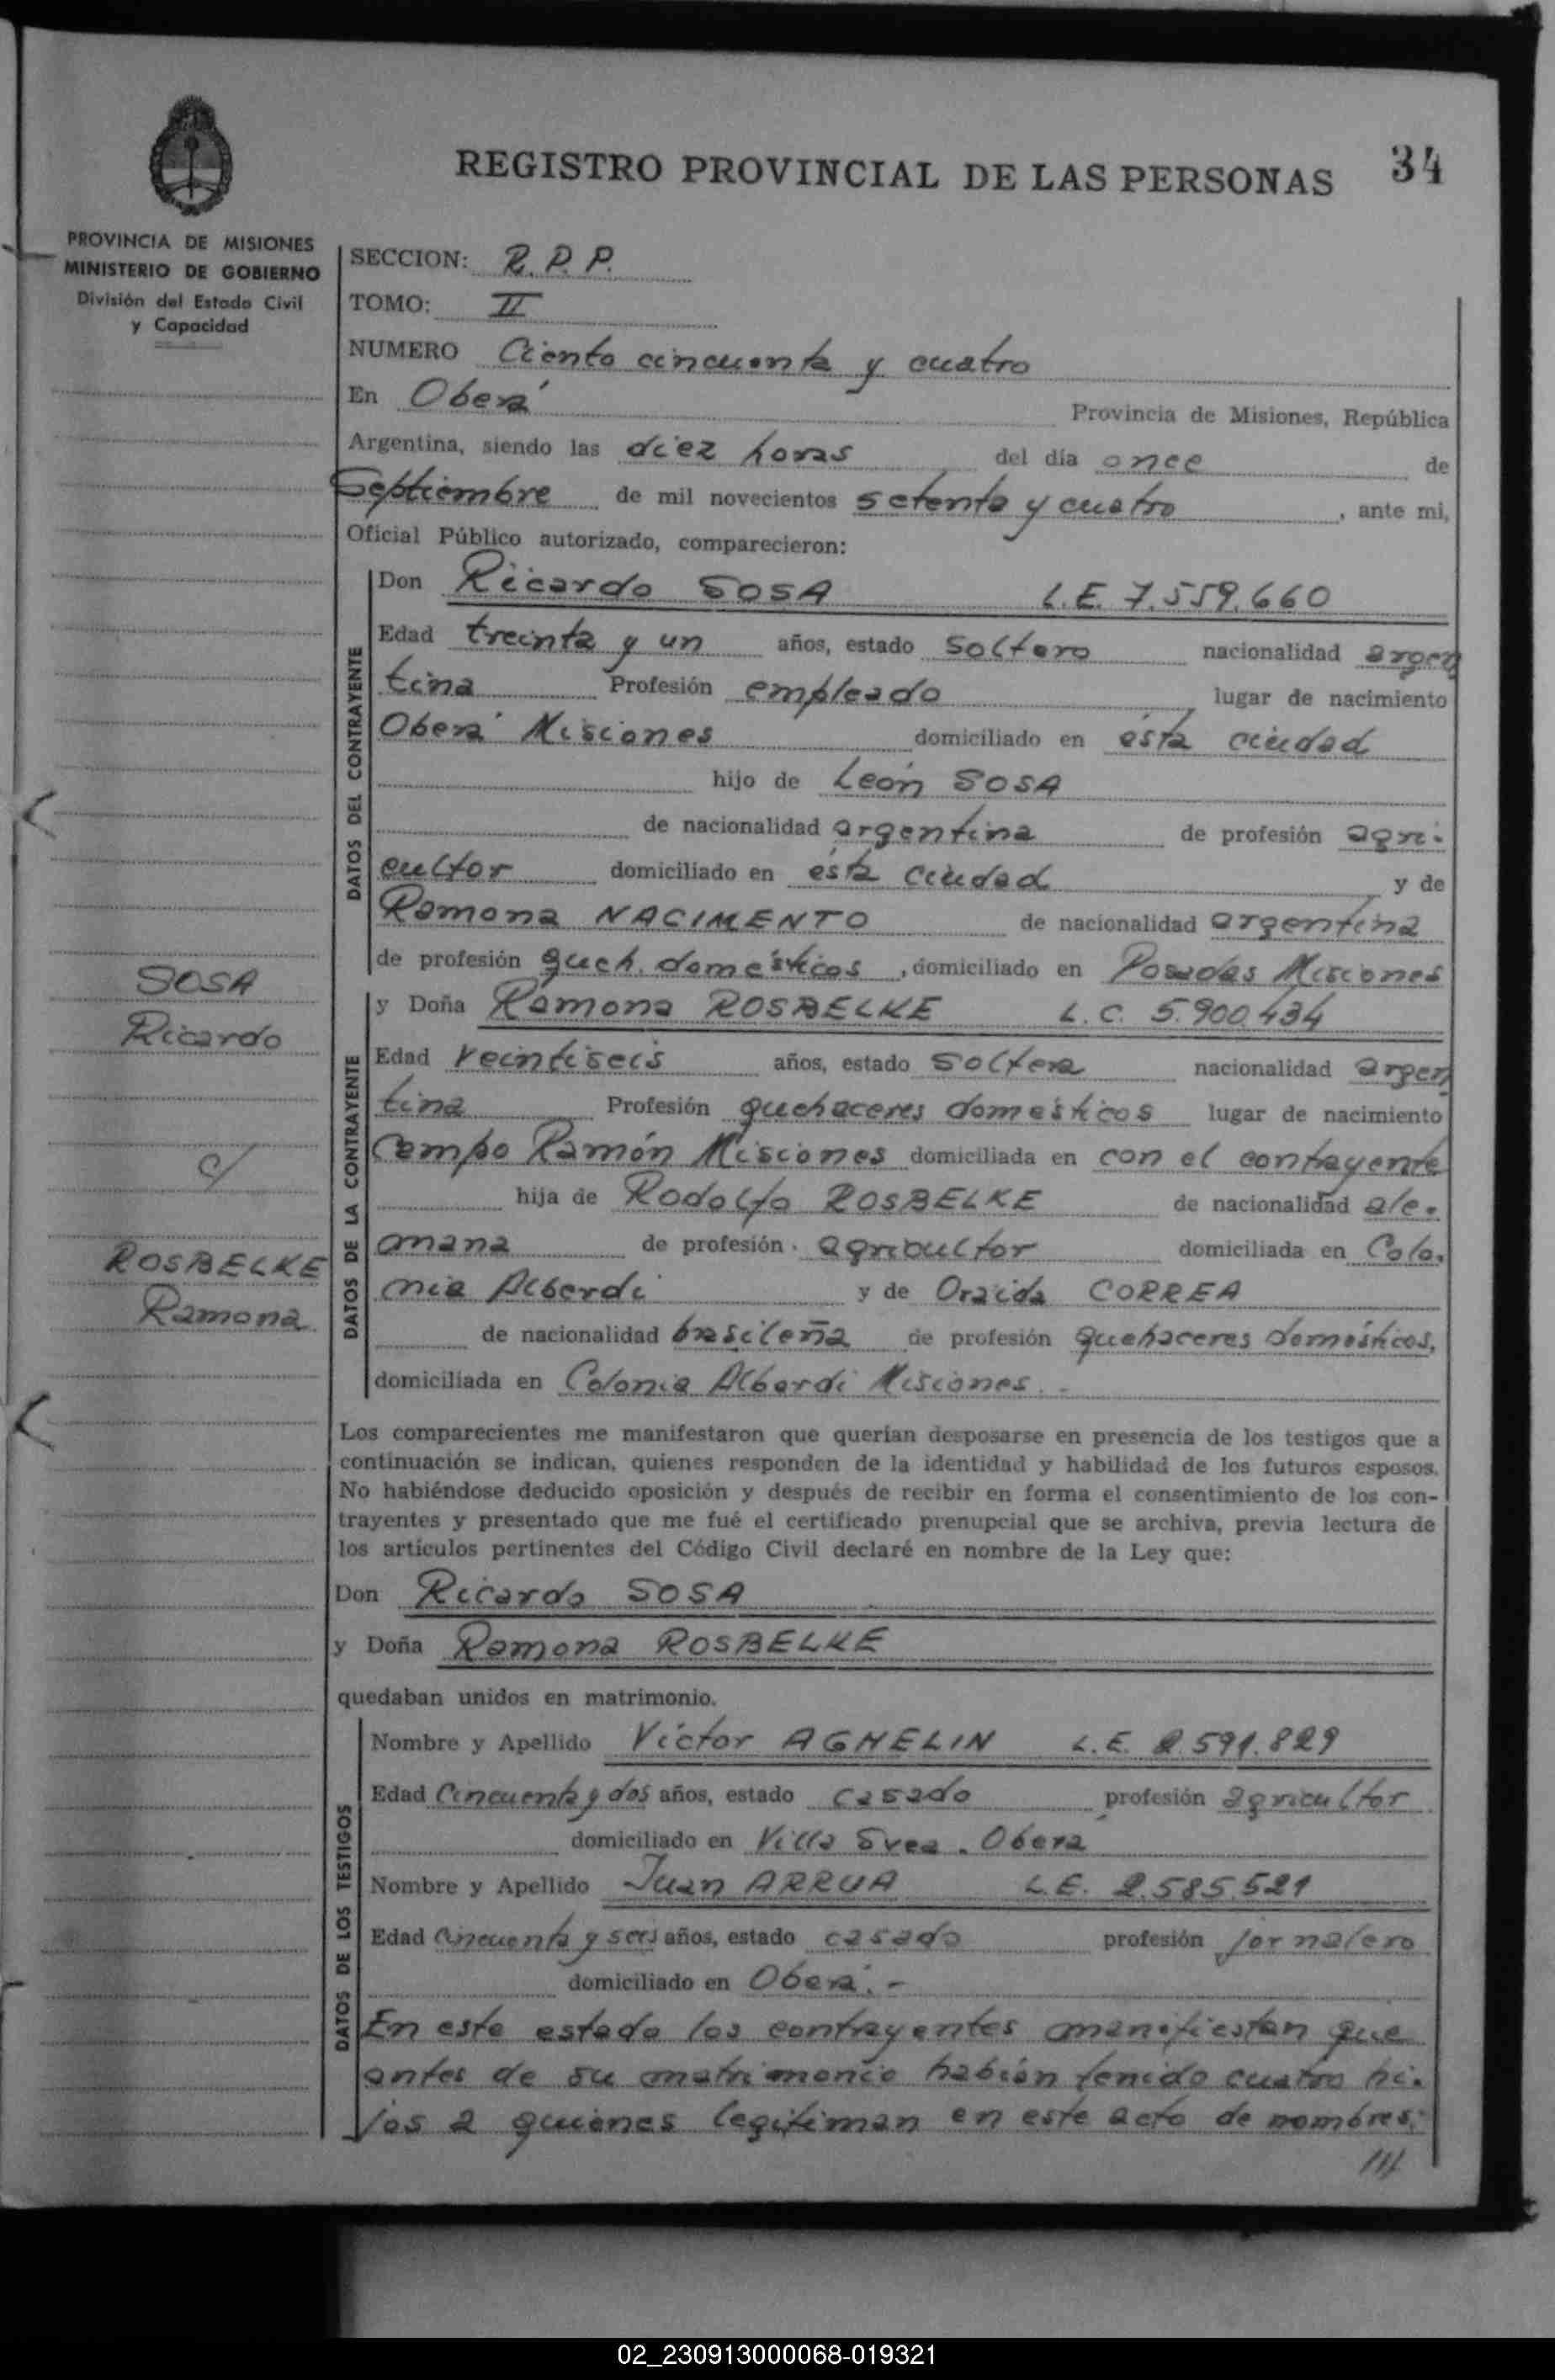 REGISTRO PROVINCIAL DE LAS PERSONAS 34
PROVINCIA DE MISIONES
MINISTERIO DE GOBIERNO
División del Estado Civil
y Capacidad
SECCION: R. P. P.
TOMO: II
NUMERO Ciento cincuenta y cuatro
En Oberá Provincia de Misiones, República
Argentina, siendo las diez horas del día once de
Septiembre de mil novecientos setenta y cuatro, ante mi,
Oficial Público autorizado, comparecieron:
DATOS DEL CONTRAYENTE
Don Ricardo SOSA L.E. 7.559.660
Edad treinta y un años, estado soltero nacionalidad argen
tina Profesión empleado lugar de nacimiento
Oberá Misiones domiciliado en ésta ciudad
hijo de León SOSA
de nacionalidad argentina de profesión agri-
cultor domiciliado en ésta ciudad y de
Ramona NACIMENTO de nacionalidad argentina
de profesión queh. domésticos, domiciliado en Posadas Misiones
SOSA
Ricardo
c/
ROSBELKE
Ramona
DATOS DE LA CONTRAYENTE
y Doña Ramona ROSBELKE L. C. 5.900.434
Edad veintiseis años, estado soltera nacionalidad argen
tina Profesión quehaceres domésticos lugar de nacimiento
Campo Ramón Misiones domiciliada en con el contrayente
hija de Rodolfo ROSBELKE de nacionalidad ale-
mana de profesión agricultor domiciliada en Colo-
nia Alberdi y de Oraida CORREA
de nacionalidad brasileña de profesión quehaceres domésticos,
domiciliada en Colonia Alberdi Misiones.-
Los comparecientes me manifestaron que querían desposarse en presencia de los testigos que a
continuación se indican, quienes responden de la identidad y habilidad de los futuros esposos.
No habiéndose deducido oposición y después de recibir en forma el consentimiento de los con-
trayentes y presentado que me fué el certificado prenupcial que se archiva, previa lectura de
los artículos pertinentes del Código Civil declaré en nombre de la Ley que:
Don Ricardo SOSA
y Doña Ramona ROSBELKE
quedaban unidos en matrimonio.
DATOS DE LOS TESTIGOS
Nombre y Apellido Victor AGHELIN L.E. 2.591.829
Edad Cincuenta y dos años, estado casado profesión agricultor
domiciliado en Villa Svea - Oberá
Nombre y Apellido Juan ARRUA L.E. 2.585.521
Edad cincuenta y seis años, estado casado profesión jornalero
domiciliado en Oberá.-
En este estado los contrayentes manifiestan que
antes de su matrimonio habían tenido cuatro hi-
jos a quienes legitiman en este acto de nombres:
///
02_230913000068-019321